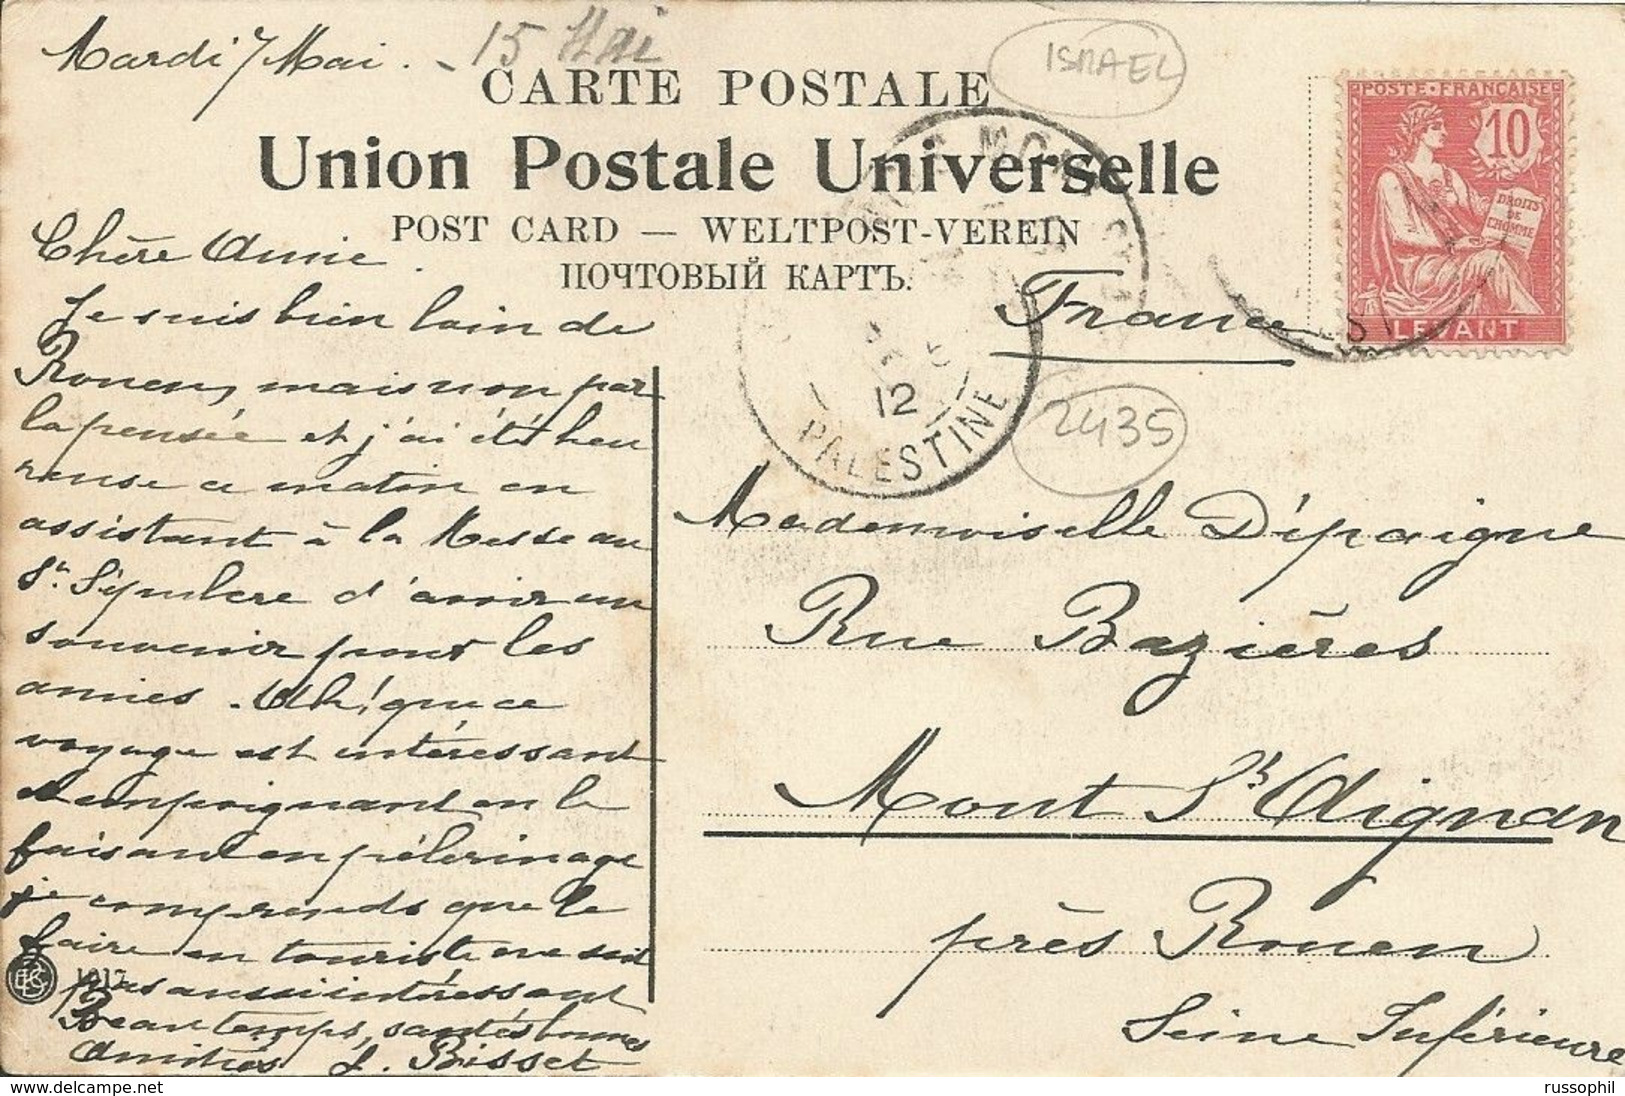 Mardi 7 Mai. - 15 Mai
ISRAEL
CARTE POSTALE
Union Postale Universelle
POST CARD — WELTPOST-VEREIN
ПОЧТОВЫЙ КАРТЪ.
POSTE FRANÇAISE
10
DROITS DE L'HOMME
LEVANT
12
PALESTINE
2435
France
Chère Amie.
Je suis bien loin de
Rouen, mais non par
la pensée et j'ai été heu
reuse ce matin en
assistant à la Messe au
St. Sépulcre d'avoir un
souvenir pour les
amies. Ah! que ce
voyage est intéressant
et empoignant en le
faisant en pélerinage
je comprends que le
faire en touriste ne soit
pas aussi intéressant
Beau temps, santés bonnes
Amitiés J. Bisset
Mademoiselle Dépaigne
Rue Bazières
Mont St Aignan
près Rouen
Seine Inférieure
russophil